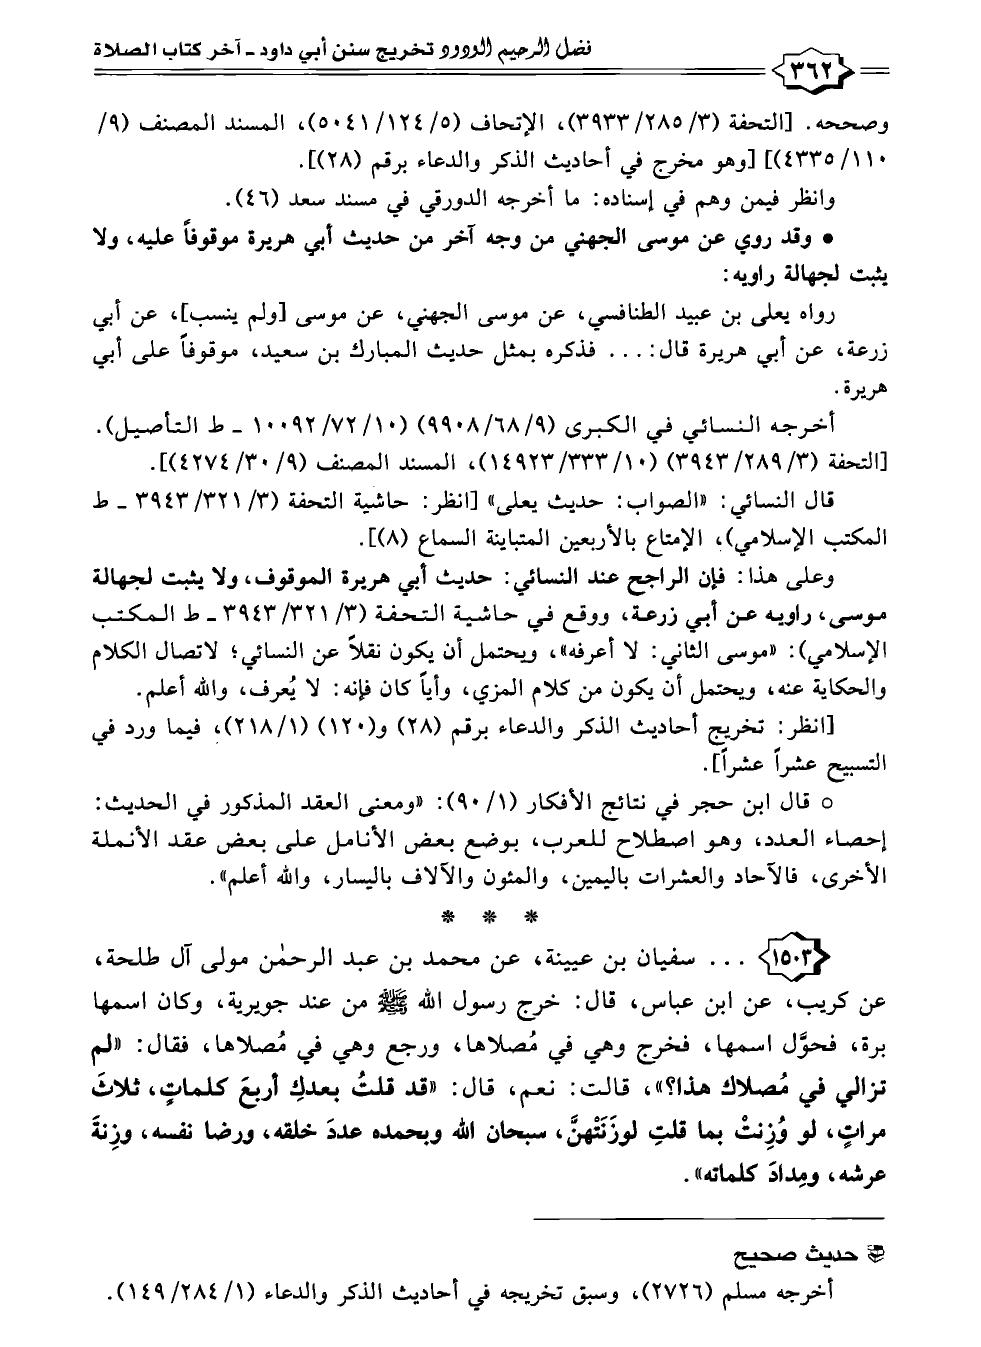 فضل الرحيم الودود تخريج سنن أبي داود - آخر كتاب الصلاة
٣٦٢
وصححه. [التحفة (٣٩٣٣/٢٨٥/٣)، الإتحاف (٥٠٤١/١٢٤/٥)، المسند المصنف (٩/
٤٣٣٥/١١٠)] [وهو مخرج في أحاديث الذكر والدعاء برقم (٢٨)].
وانظر فيمن وهم في إسناده: ما أخرجه الدورقي في مسند سعد (٤٦).
• وقد روي عن موسى الجهني من وجه آخر من حديث أبي هريرة موقوفاً عليه، ولا
يثبت لجهالة راويه:
رواه يعلى بن عبيد الطنافسي، عن موسى الجهني، عن موسى [ولم ينسب]، عن أبي
زرعة، عن أبي هريرة قال: ... فذكره بمثل حديث المبارك بن سعيد، موقوفاً على أبي
هريرة.
أخرجه النسائي في الكبرى (٩٩٠٨/٦٨/٩) (١٠٠٩٢/٧٢/١٠ - ط التأصيل).
[التحفة (٣٩٤٣/٢٨٩/٣) (١٤٩٢٣/٣٣٣/١٠)، المسند المصنف (٤٢٧٤/٣٠/٩)].
قال النسائي: «الصواب: حديث يعلى» [انظر: حاشية التحفة (٣٩٤٣/٣٢١/٣ - ط
المكتب الإسلامي)، الإمتاع بالأربعين المتباينة السماع (٨)].
وعلى هذا: فإن الراجح عند النسائي: حديث أبي هريرة الموقوف، ولا يثبت لجهالة
موسى، راويه عن أبي زرعة، ووقع في حاشية التحفة (٣٩٤٣/٣٢١/٣ - ط المكتب
الإسلامي): «موسى الثاني: لا أعرفه»، ويحتمل أن يكون نقلاً عن النسائي؛ لاتصال الكلام
والحكاية عنه، ويحتمل أن يكون من كلام المزي، وأياً كان فإنه: لا يُعرف، والله أعلم.
[انظر: تخريج أحاديث الذكر والدعاء برقم (٢٨) و(١٢٠) (٢١٨/١)، فيما ورد في
التسبيح عشراً عشراً].
○ قال ابن حجر في نتائج الأفكار (٩٠/١): «ومعنى العقد المذكور في الحديث:
إحصاء العدد، وهو اصطلاح للعرب، بوضع بعض الأنامل على بعض عقد الأنملة
الأخرى، فالآحاد والعشرات باليمين، والمئون والآلاف باليسار، والله أعلم».
* * *
١٥٠٣ ... سفيان بن عيينة، عن محمد بن عبد الرحمٰن مولى آل طلحة،
عن كريب، عن ابن عباس، قال: خرج رسول الله ﷺ من عند جويرية، وكان اسمها
برة، فحوَّل اسمها، فخرج وهي في مُصلاها، ورجع وهي في مُصلاها، فقال: «لم
تزالي في مُصلاك هذا؟»، قالت: نعم، قال: «قد قلتُ بعدكِ أربعَ كلماتٍ، ثلاثَ
مراتٍ، لو وُزِنتْ بما قلتِ لوزَنَتْهنَّ، سبحان الله وبحمده عددَ خلقه، ورضا نفسه، وزِنةَ
عرشه، ومِدادَ كلماته».
حديث صحيح
أخرجه مسلم (٢٧٢٦)، وسبق تخريجه في أحاديث الذكر والدعاء (١٤٩/٢٨٤/١).